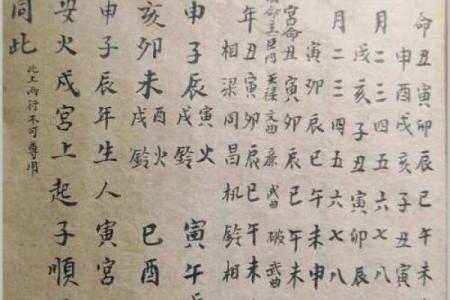 命丑寅卯辰巳午未
申酉戌亥子丑寅
月二三四五六七八
戌亥子丑寅卯辰
月二三四五六七八
寅卯辰巳午未申
宫命丑寅卯辰巳午未
命主巨門 文曲 廉 武曲 破 武曲
年丑寅卯辰巳午未
相梁同昌机鈴相
申子辰寅火戌鈴 寅午
亥卯未酉火戌鈴 巳酉
申子辰年生人寅宫
安火戌宫上起子順
同此 此上两行不可專用